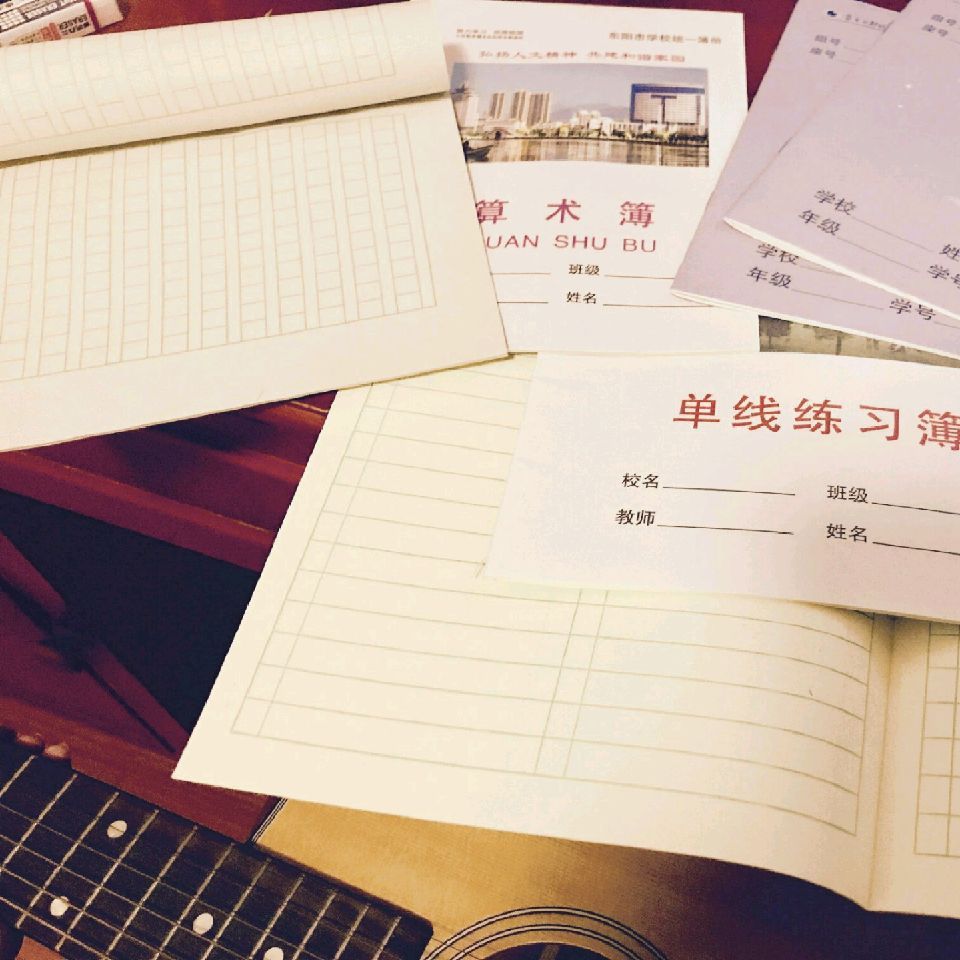 ERASER
东阳市学校统一簿册
弘扬人文精神 共建和谐家园
算术簿
UAN SHU BU
班级
姓名
组号
座号
学校
年级
学号
组号
座号
学校
年级
姓
学号
单线练习簿
校名 班级
教师 姓名